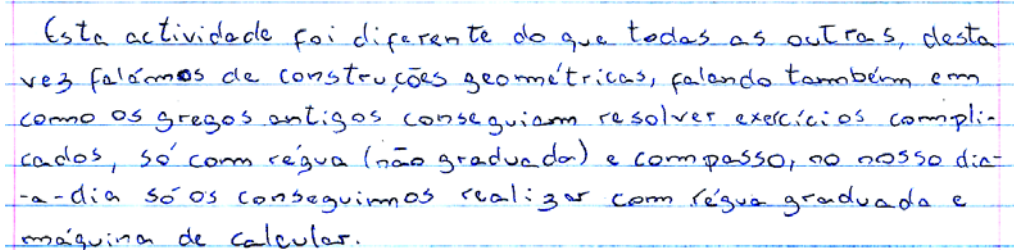 Esta actividade foi diferente do que todas as outras, desta
vez falámos de construções geométricas, falando também em
como os gregos antigos conseguiam resolver exercícios compli-
cados, só com régua (não graduada) e compasso, no nosso dia-
-a-dia só os conseguimos realizar com régua graduada e
máquina de calcular.